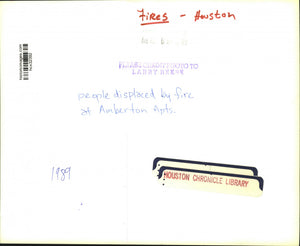 FIRES - Houston
LARRY REEVE
people displaced by fire
at Amberton Apts.
1989
HOUSTON CHRONICLE LIBRARY